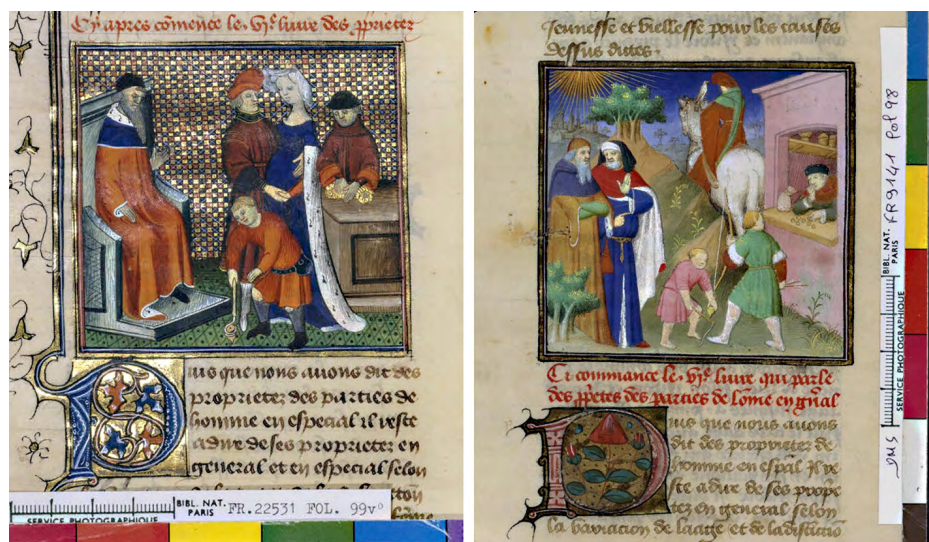 Cy apres cõmence le .vjᵉ. liure des ꝓprietez
uis que nous auons dit des
proprietez des parties de
homme en especial il reste
a dire de ses proprietez en
general et en especial selon
BIBL. NAT.
PARIS
FR. 22531 FOL. 99vº
SERVICE PHOTOGRAPHIQUE
Jeunesse et viellesse pour les causes
dessus dites.
Ci commance le .vjᵉ. liure qui parle
des ꝓp̃etes des parties de lõme en gñal
uis que nous auons
dit des proprietez de
homme en esp̃al il re
ste a dire de ses propri
etez en general selon
la variation de laage et de la distinctio
BIBL. NAT.
PARIS
FR 9141 fol 98
SERVICE PHOTOGRAPHIQUE
DMS